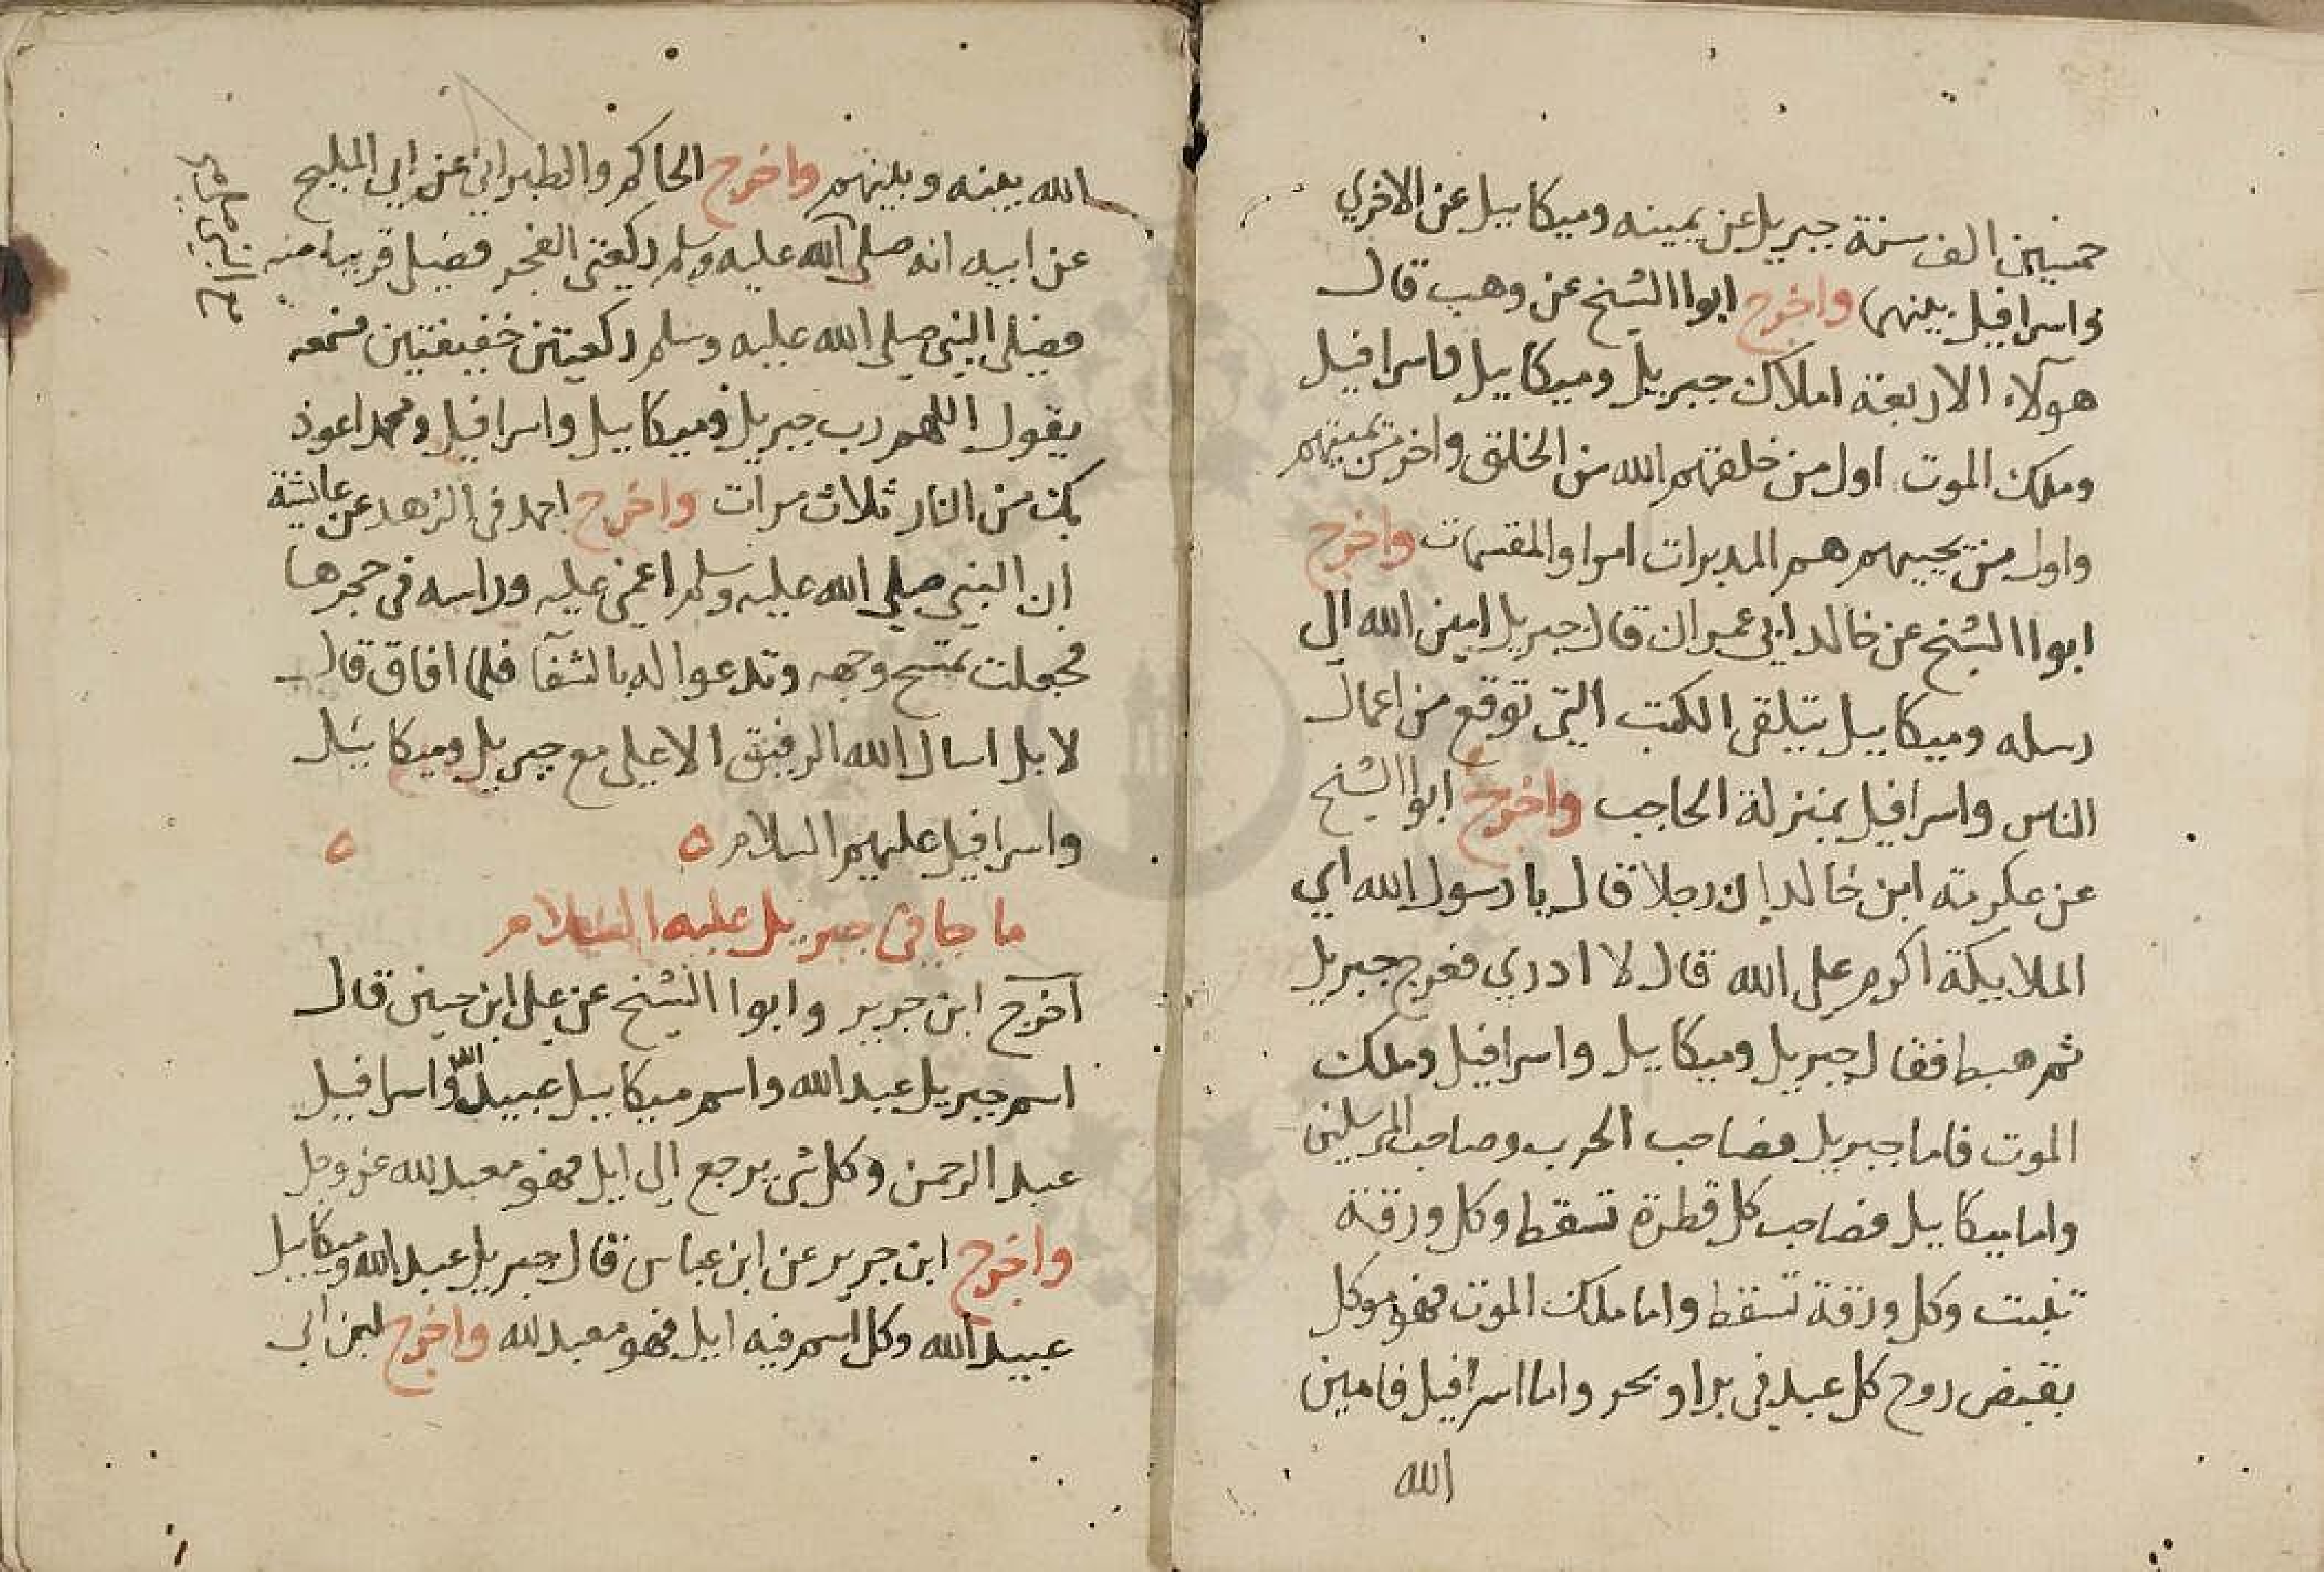 خمسين الف سنة جبريل عن يمينه وميكاييل عن الاخري
واسرافيل بينهما واخرج ابوا الشيخ عن وهب قال
هولآء الاربعة املاك جبريل وميكاييل واسرافيل
وملك الموت اول من خلقهم الله من الخلق واخر من يميتهم
واول من يحييهم هم المدبرات امرا والمقسمات واخرج
ابوا الشيخ عن خالد ابى عمران قال جبريل امين الله الي
رسله وميكاييل يتلقى الكتب التى توقع من اعمال
الناس واسرافيل بمنزلة الحاجب واخرج ابوا الشيخ
عن عكرمة ابن خالد ان رجلا قال يا رسول الله اي
الملاييكة اكرم على الله قال لا ادري فعرج جبريل
ثم هبط فقال جبريل وميكاييل واسرافيل وملك
الموت فاما جبريل فصاحب الحرب وصاحب المرسلين
واما ميكاييل فصاحب كل قطرة تسقط وكل ورقة
تنبت وكل ورقة تسقط واما ملك الموت فهو موكل
بقبض روح كل عبد في بر او بحر واما اسرافيل فامين
الله
الله بينه وبينهم واخرج الحاكم والطبراني عن ابي المليح
عن ابيه انه صلى الله عليه وسلم ركعتى الفجر فصلى قريبا منه
فصلى النبي صلى الله عليه وسلم ركعتين خفيفتين فسمعه
يقول اللهم رب جبريل وميكاييل واسرافيل ومحمد اعوذ
بك من النار ثلاث مرات واخرج احمد في الزهد عن عائشة
ان النبي صلى الله عليه وسلم اغمي عليه وراسه في حجرها
فجعلت تمسح وجهه وتدعوا له بالشفآ فلما افاق قال
لا بل اسال الله الرفيق الاعلى مع جبريل وميكائيل
واسرافيل عليهم السلام ه ه
ما جا في جبريل عليه السلام
اخرج ابن جرير وابوا الشيخ عن على ابن حسين قال
اسم جبريل عبد الله واسم ميكاييل عبيد الله واسرافيل
عبد الرحمن وكل شى يرجع الى ايل فهو معبد لله عز وجل
واخرج ابن جرير عن ابن عباس قال جبريل عبد الله وميكاييل
عبيد الله وكل اسم فيه ايل فهو معبد لله واخرج ابن ابي